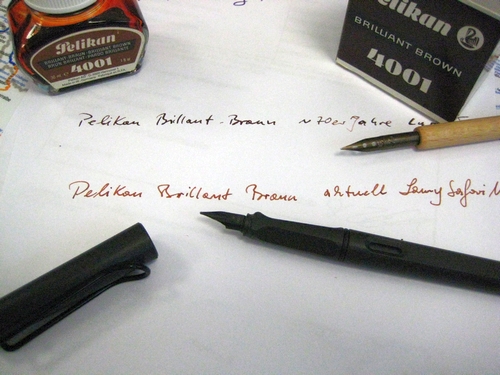 Pelikan
BRILLIANT BROWN
4001
Pelikan
BRILLIANT BROWN
4001
Pelikan Brillant-Braun ~70er Jahre
Pelikan Brillant Braun aktuell Lamy Safari M